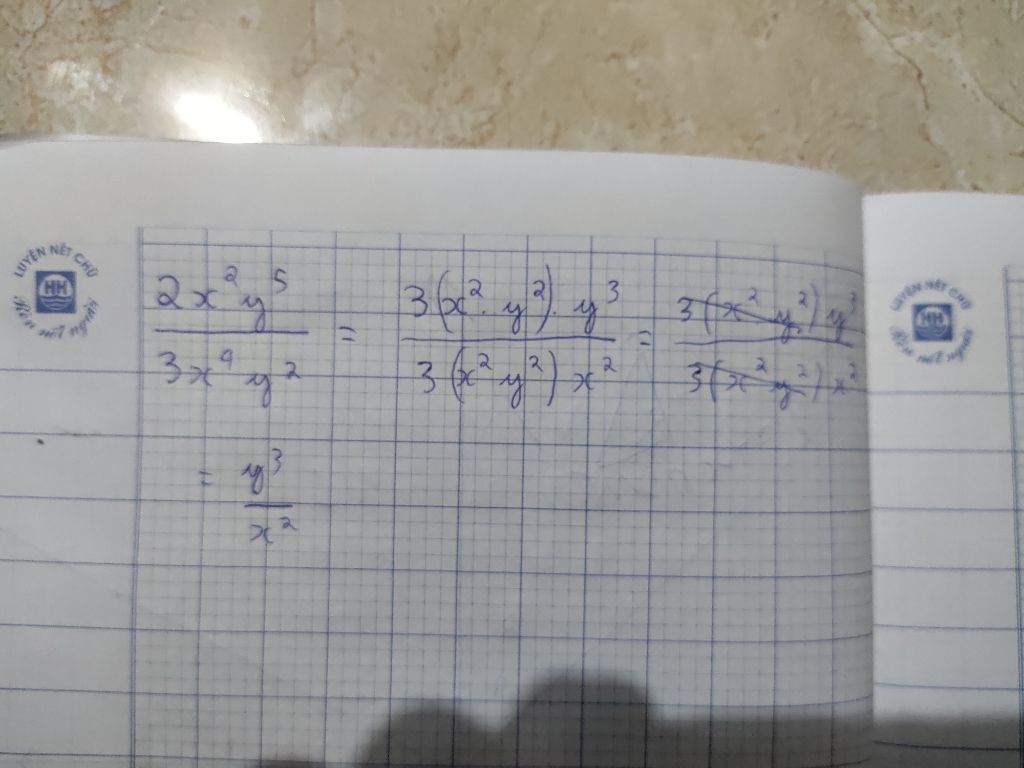 LUYỆN NÉT CHỮ
HH
Rèn nết người
2x²y⁵ / 3x⁴y² = 3(x².y²).y³ / 3(x²y²)x² = 3(x²y²)y³ / 3(x²y²)x²
= y³ / x²
LUYỆN NÉT CHỮ
HH
Rèn nết người